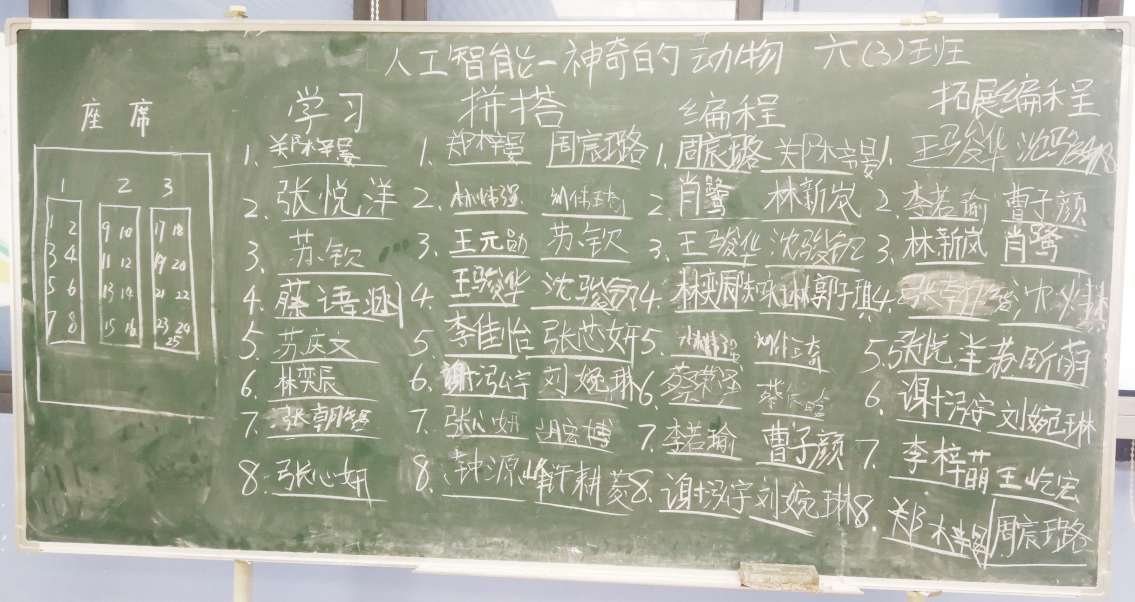 人工智能-神奇的动物 六(3)班
座席
1 2 3
1 2 9 10 17 18
3 4 11 12 19 20
5 6 13 14 21 22
7 8 15 16 23 24
25
学习
1. 郑梓晏
2. 张悦洋
3. 苏钦
4. 蔡语涵
5. 苏庆文
6. 林奕辰
7. 张朝
8. 张心妍
拼搭
1. 郑梓晏 周宸璐
2. 林炜强 刘佳琦
3. 王元勋 苏钦
4. 王骏华 沈骏
5. 李佳怡 张芯妍
6. 谢泓宇 刘婉琳
7. 张心妍 胡宏博
8. 钟源峰 许耕菱
编程
1. 周宸璐 郑梓晏
2. 肖鹭 林新岚
3. 王骏华 沈骏
4. 林奕辰 郭子琪
5. 琦
6. 蔡
7. 李若瑜 曹子颜
8. 谢泓宇 刘婉琳
拓展编程
1. 王骏华 沈
2. 李若瑜 曹子颜
3. 林新岚 肖鹭
4. 张朝 沈
5. 张悦洋 苏昕萌
6. 谢泓宇 刘婉琳
7. 李梓萌 王屹宏
8. 郑梓晏 周宸璐